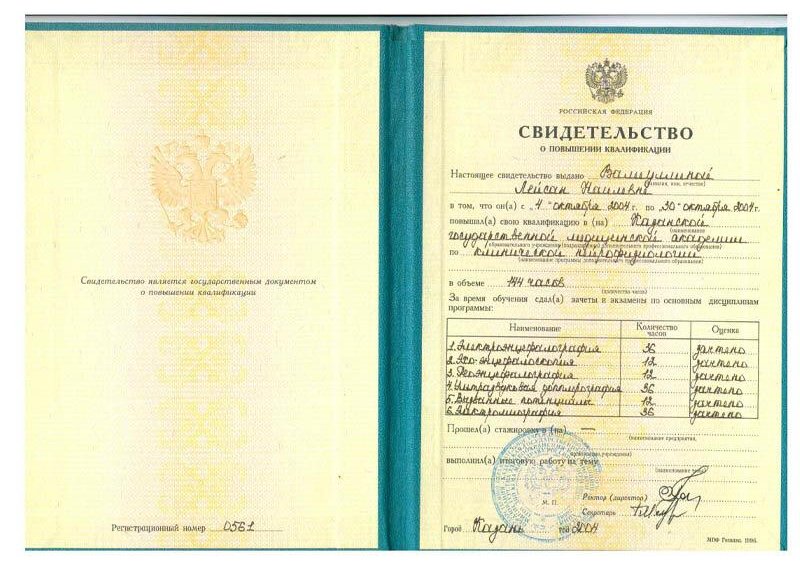 Свидетельство является государственным документом
о повышении квалификации
Регистрационный номер 0561
РОССИЙСКАЯ ФЕДЕРАЦИЯ
СВИДЕТЕЛЬСТВО
О ПОВЫШЕНИИ КВАЛИФИКАЦИИ
Настоящее свидетельство выдано Валиуллиной
(фамилия, имя, отчество)
Лейсан Наилевне
в том, что он(а) с „4" октября 2004 г. по „30" октября 2004 г.
повышал(а) свою квалификацию в (на) Казанской
(наименование
государственной медицинской академии
образовательного учреждения (подразделения) дополнительного профессионального образования)
по клинической нейрофизиологии
(наименование программы дополнительного профессионального образования)
в объеме 144 часов
(количество часов)
За время обучения сдал(а) зачеты и экзамены по основным дисциплинам
программы:
Наименование Количество часов Оценка
1. Электроэнцефалография 36 зачтено
2. Эхо-энцефалоскопия 12 зачтено
3. Реоэнцефалография 12 зачтено
4. Ультразвуковая допплерография 36 зачтено
5. Вызванные потенциалы 12 зачтено
6. Электромиография 36 зачтено
Прошел(а) стажировку в (на) —
(наименование предприятия,
организации, учреждения)
выполнил(а) итоговую работу на тему
(наименование темы)
Ректор (директор)
М. П.
Секретарь
Город Казань год 2004
МПФ Гознака. 1996.